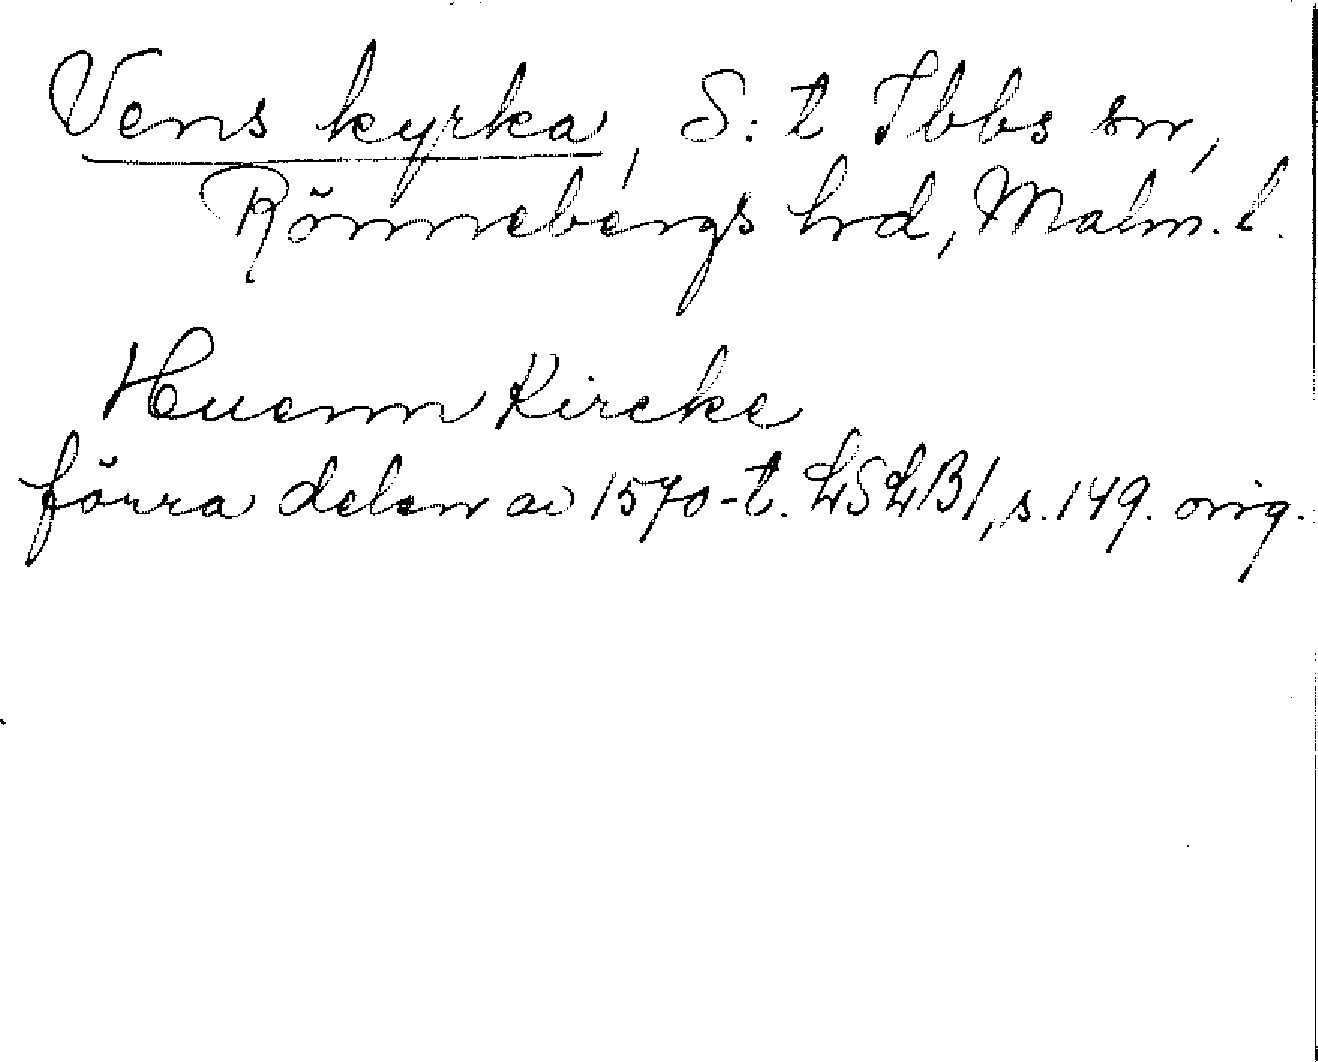 Vens kyrka, S:t Ibbs sn,
Rönnebergs hrd, Malm. l.
Huenn Kircke
förra delen av 1570-t. LSLB1, s. 149. orig.